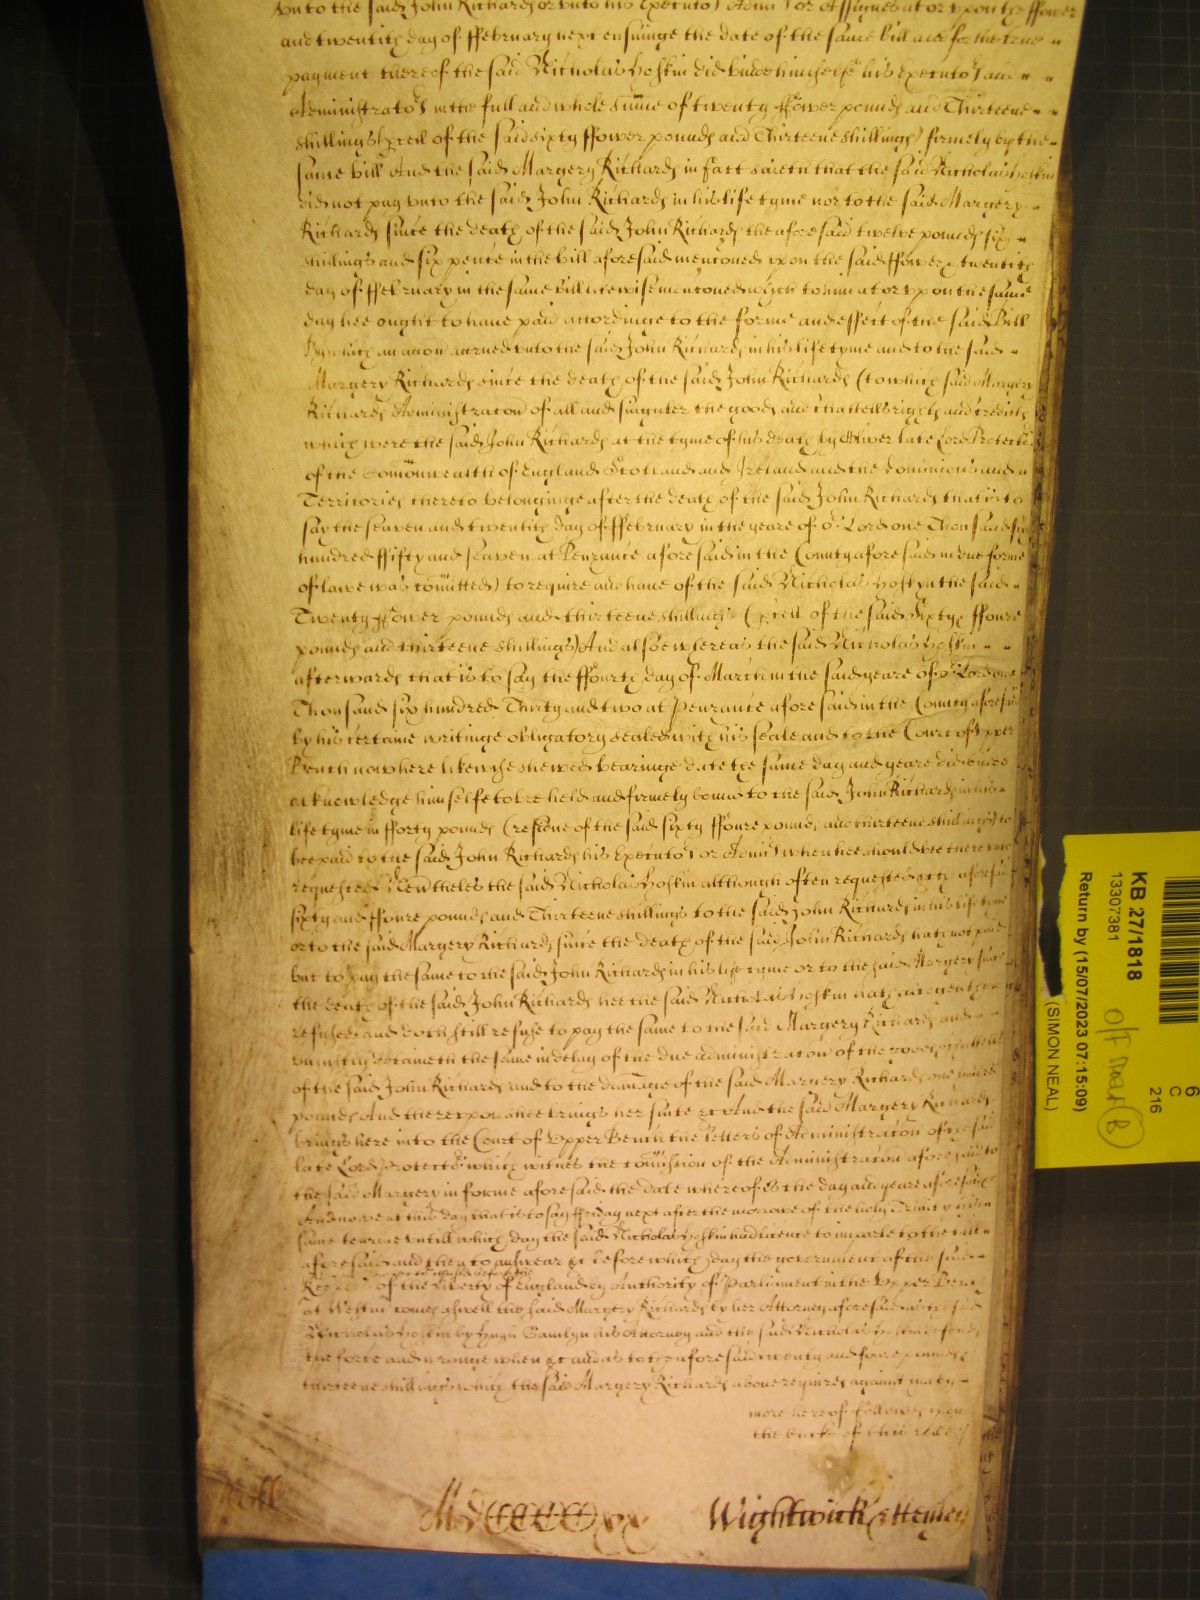 vnto the said John Richards or vnto his Executors Admi or Assignes at or vpon the ffower
and twentith day of ffebruary next ensuinge the date of the same bill and for the true
payment thereof the said Nicholas Hoskin did binde himselfe his Executors and
Administrators in the full and whole sume of twenty ffower pounds and Thirteene
shillings (prcell of the said sixty ffower pounds and Thirteene shillings) firmely by the
same bill And the said Margery Richards in fact saieth that the said Nicholas Hoskin
did not pay vnto the said John Richards in his life tyme nor to the said Margery
Richards since the death of the said John Richards the aforesaid twelve pounds six
shillings and six pence in the bill aforesaid menconed vpon the said ffower & twentith
day of ffebruary in the same bill likewise menconed which to him at or vpon the same
day hee ought to have paid accordinge to the forme and effect of the said Bill
By which an accon accrued vnto the said John Richards in his life tyme and to the said
Margery Richards since the death of the said John Richards (to which said Margery
Richards Administracon of all and singuler the goods and chattells rights and credits
which were the said John Richards at the tyme of his death by Oliver late Lord Protector
of the Comonwealth of England Scotland and Ireland and the dominions and
Territories thereto belonginge after the death of the said John Richards that is to
say the seaven and twentith day of ffebruary in the yeare of or Lord one Thousand six
hundred ffifty and seaven at Penzance aforesaid in the County aforesaid in due forme
of lawe was comitted) to require and haue of the said Nicholas Hoskyn the said
Twenty ffower pounds and thirteene shillings (prcell of the said Sixty ffoure
pounds and thirteene shillings) And alsoe whereas the said Nicholas Hoskin
afterwards that is to say the ffourth day of March in the said yeare of or Lord one
Thousand six hundred Thirty and two at Penzance aforesaid in the County aforesaid
by his certaine writinge obligatory sealed with his seale and to the Court of Vpper
Bench now here likewise shewed bearinge date the same day and yeare did
acknowledge himselfe to be held and firmely bound to the said John Richards in his
life tyme in fforty pounds (residue of the said sixty ffoure pounds and thirteene shillings) to
bee paid to the said John Richards his Executors or Admi when hee should bee therevnto
requested Neverthelesse the said Nicholas Hoskin although often requested &c the aforesaid
sixty and ffoure pounds and Thirteene shillings to the said John Richards in his life tyme
or to the said Margery Richards since the death of the said John Richards hath not paid
but to pay the same to the said John Richards in his life tyme or to the said Margery since
the death of the said John Richards hee the said Nicholas Hoskin hath
refused and doth still refuse to pay the same to the said Margery Richards and
vniustly detaineth the same in delay of the due administracon of the goods
of the said John Richards and to the damage of the said Margery Richards one hundred
pounds And therevpon shee brings her suite &c And the said Margery Richards
brings here into the Court of Vpper Bench the Letters of Administracon of the said
late Lord Protector which witnes the comission of the Administracon aforesaid to
the said Margery in forme aforesaid the date whereof is the day and yeare aforesaid
And now at this day that is to say ffriday next after the morrow of the holy Trinity
same tearme vntill which day the said Nicholas Hoskin had licence to imparle to the bill
aforesaid and then to answear &c before which day the government of the said
of the liberty of England by Authority of Parliment in the Vpper Bench
at Westm comes aswell the said Margery Richards by her Attorney aforesaid as the said
Nicholas Hoskin by Hugh his Attorney and the said Nicholas Hoskin
the force and wronge when &c and as to the aforesaid twenty and foure pounds
thirteene shillings which the said Margery Richards aboue requires against
more hereof followes vpon
the backe of this
Roll
Wightwick & Henley
KB 27/1818
13307381
Return by (15/07/2023 07:15:09)
(SIMON NEAL)
6
C
216